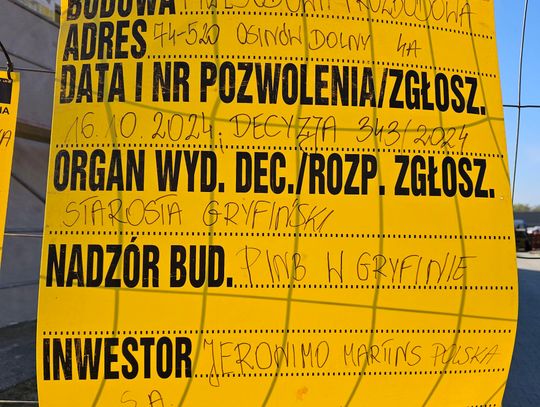 BUDOWA PRZEBUDOWA ROZBUDOWA
ADRES 74-520 OSINÓW DOLNY 4A
DATA I NR POZWOLENIA/ZGŁOSZ.
16.10.2024, DECYZJA 343/2024
ORGAN WYD. DEC./ROZP. ZGŁOSZ.
STAROSTA GRYFIŃSKI
NADZÓR BUD. PINB W GRYFINIE
INWESTOR JERONIMO MARTINS POLSKA
S.A.